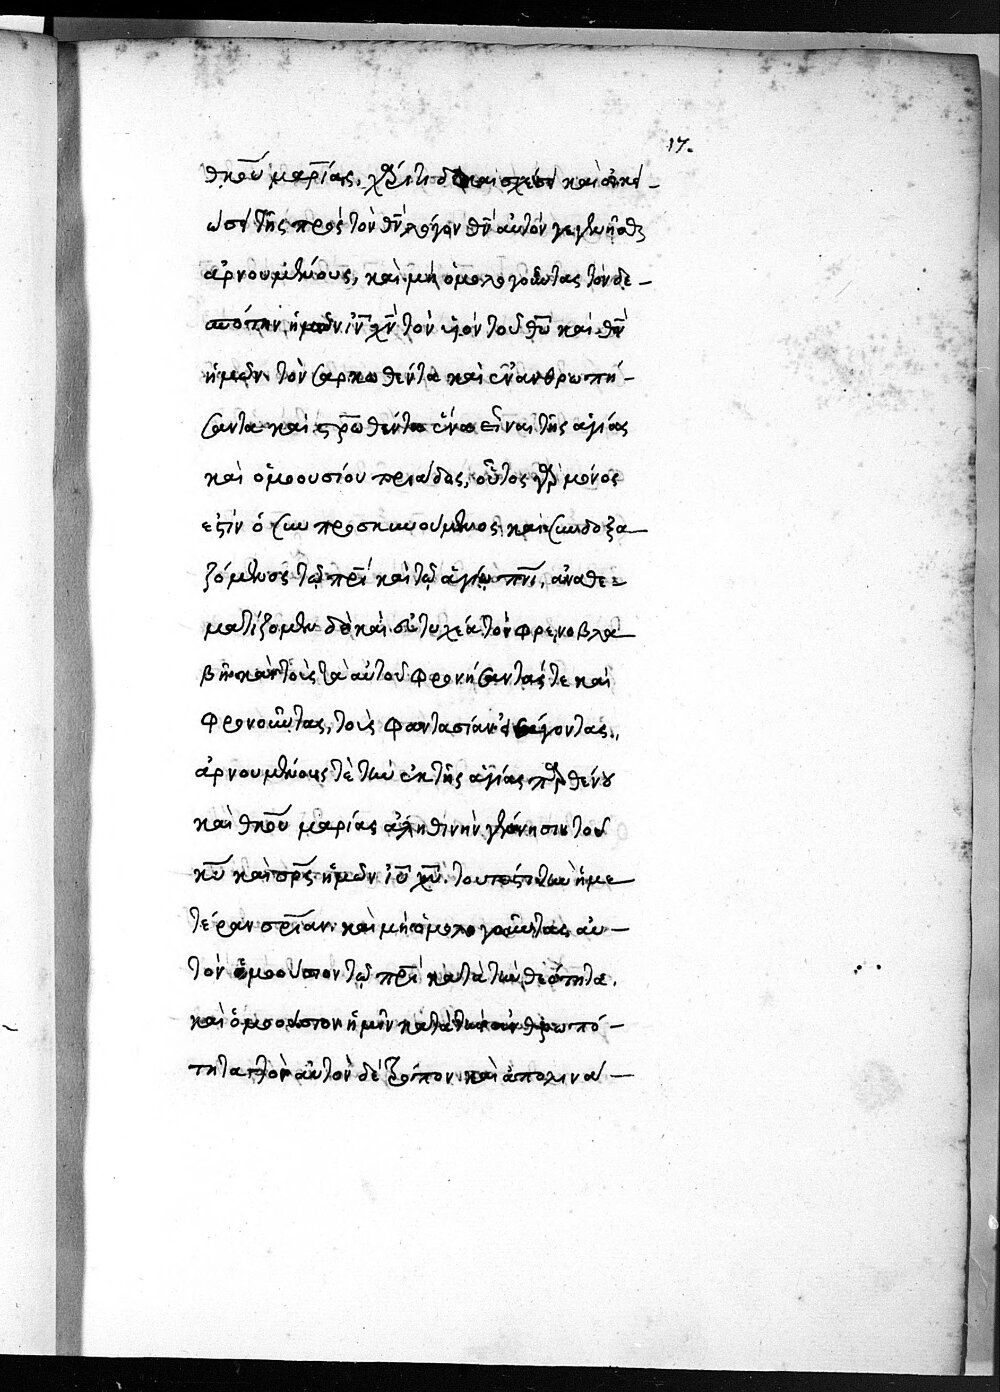 17.
θκου μαρίας, χάριτι δὲ καὶ σχέσει καὶ οἰκει–
ώσει τῆς πρὸς τὸν θν λόγον θν αὐτὸν γεγενῆσθαι
ἀρνουμένους, καὶ μὴ ὁμολογοῦντας τὸν δε–
σπότην ἡμῶν ιν χν τὸν υἱὸν τοῦ θυ καὶ θν
ἡμῶν τὸν σαρκωθέντα καὶ ἐνανθρωπή–
σαντα καὶ σρωθέντα ἕνα εἶναι τῆς ἁγίας
καὶ ὁμοουσίου τριάδος, οὗτος γὰρ μόνος
ἐστὶν ὁ συμπροσκυνούμενος καὶ συνδοξα–
ζόμενος τῷ πρι καὶ τῷ ἁγίω πνι, ἀναθε=
ματίζομεν δὲ καὶ εὐτυχέα τὸν φρενοβλα–
βῆ καὶ τοὺς τὰ αὐτοῦ φρονήσαντάς τε καὶ
φρονοῦντας, τοὺς φαντασίαν λέγοντας,
ἀρνουμένους τὲ τὴν ἐκ τῆς ἁγίας παρθένου
καὶ θκου μαρίας ἀληθινὴν γέννησιν τοῦ
κυ καὶ σρς ἡμῶν ιυ χυ. τουτέστι τὴν ἡμε–
τέραν σρίαν. καὶ μὴ ὁμολογοῦντας αὐ–
τὸν ὁμοούσιον τῷ πρι κατὰ τὴν θεότητα,
καὶ ὁμοούσιον ἡμῖν κατὰ τὴν ἀνθρωπό–
τητα τὸν αὐτὸν δὲ τρόπον καὶ ἀπολινα–